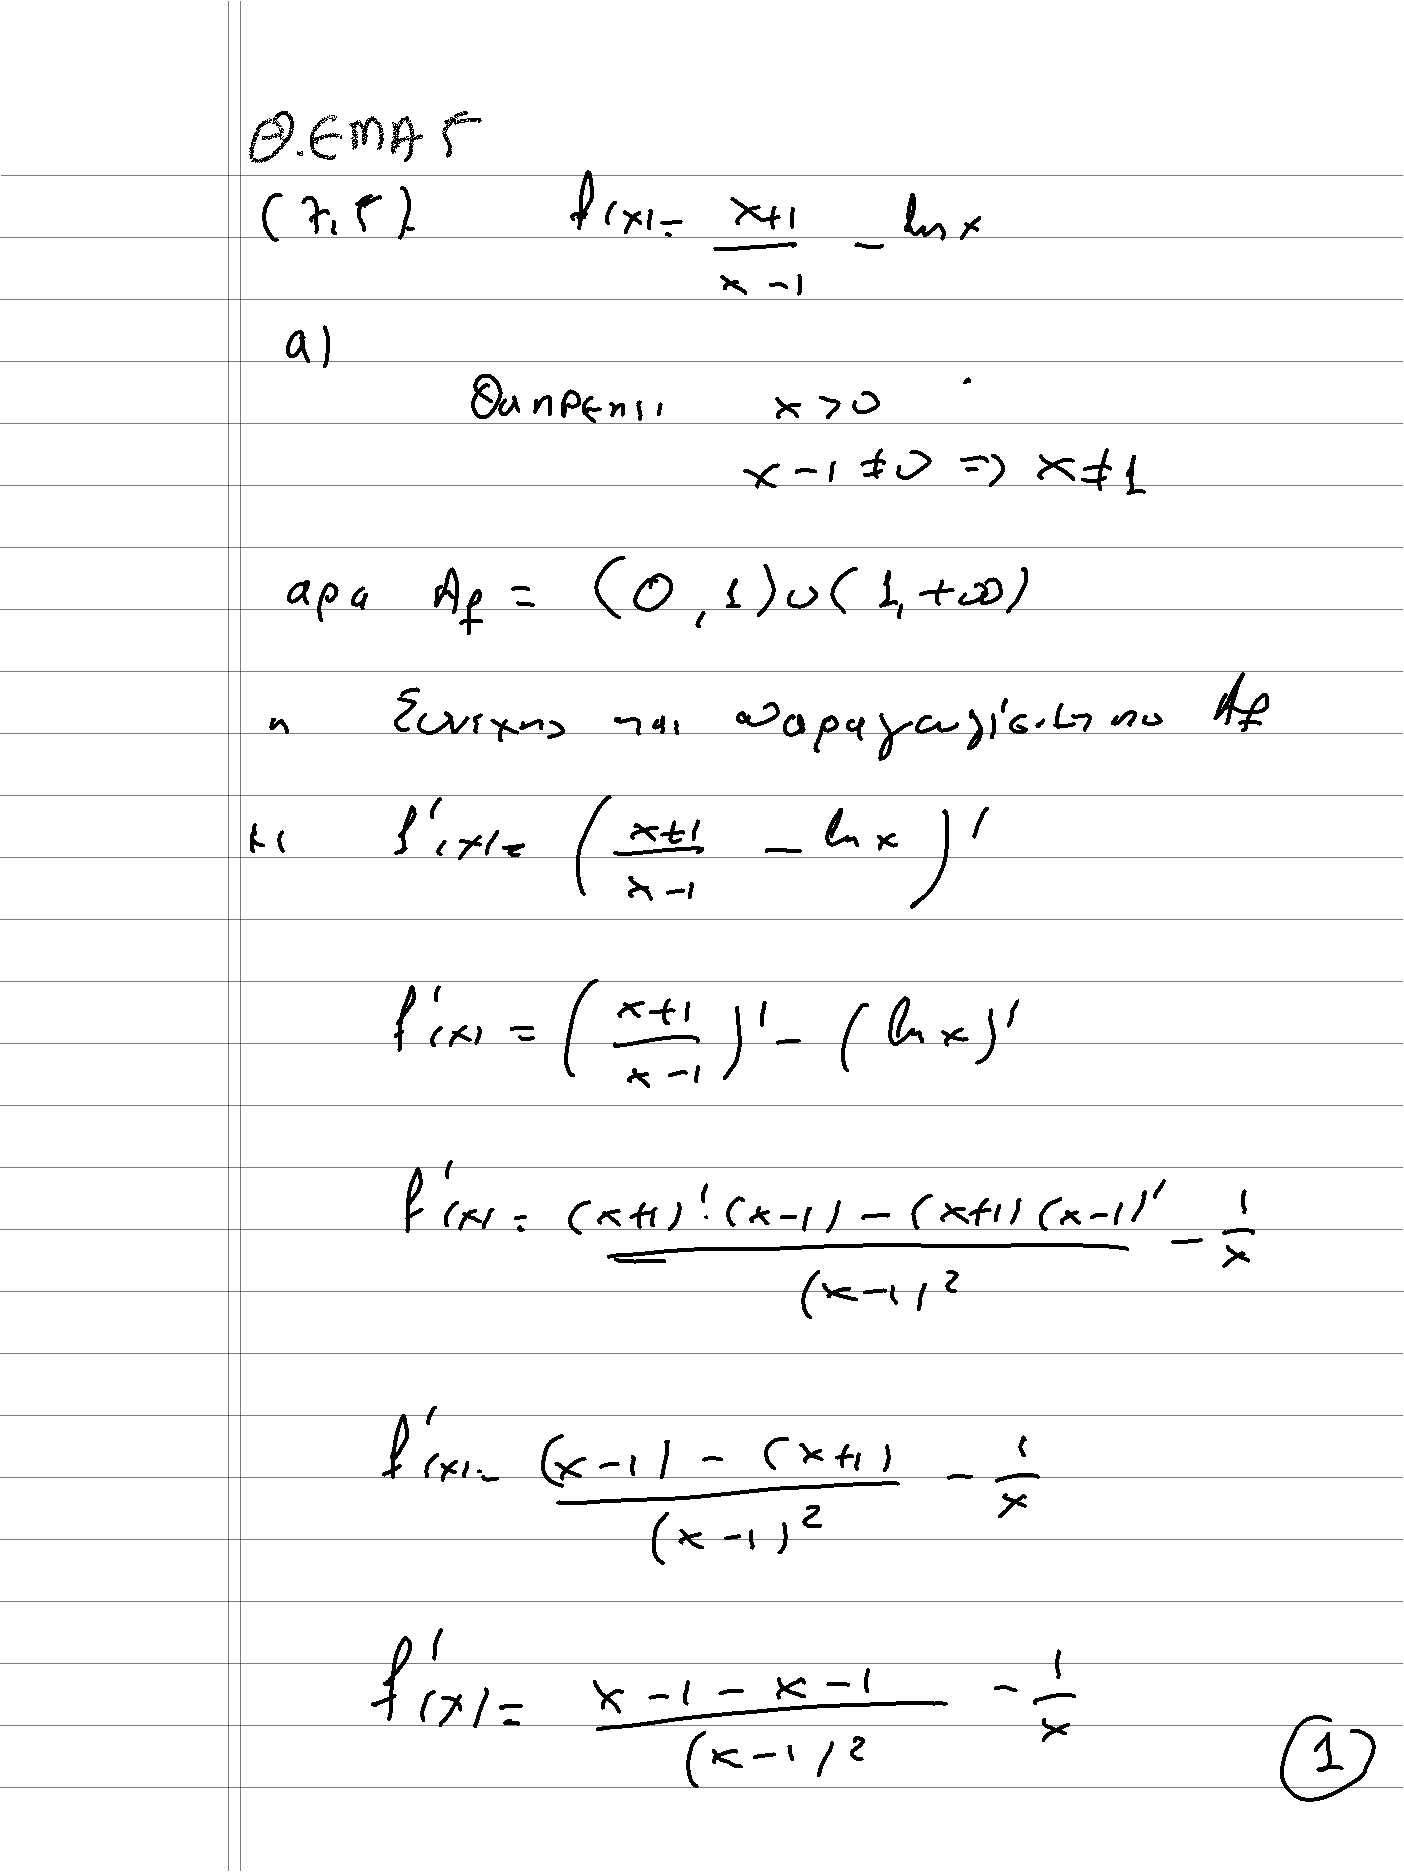 ΘΕΜΑ 5
(7,5) f(x)= \frac{x+1}{x-1} - ln x
α)
Θα πρεπει x>0
x-1≠0 => x≠1
αρα Af = (0,1)∪(1,+∞)
η Συνεχης και παραγωγίσιμη στο Af
f'(x)= (\frac{x+1}{x-1} - ln x)'
f'(x) = (\frac{x+1}{x-1})' - (ln x)'
f'(x) = \frac{(x+1)'·(x-1) - (x+1)(x-1)'}{(x-1)^2} - \frac{1}{x}
f'(x)= \frac{(x-1) - (x+1)}{(x-1)^2} - \frac{1}{x}
f'(x)= \frac{x-1-x-1}{(x-1)^2} - \frac{1}{x}
1